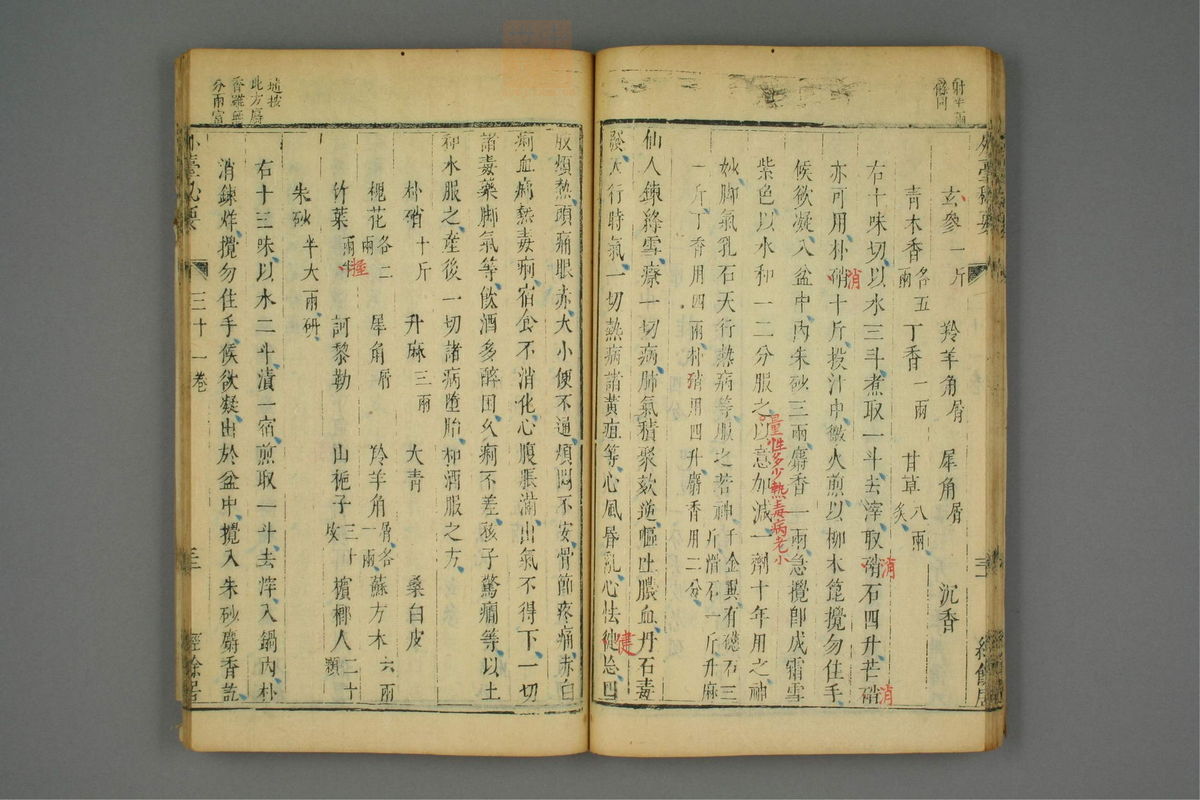 射半兩
外臺秘要
經餘居
玄參一斤 羚羊角屑 犀角屑 沉香
青木香各五兩 丁香一兩 甘草八兩炙
右十味切以水三斗煮取一斗去滓取硝石四升芒硝
消
消
亦可用朴硝十斤投汁中微火煎以柳木篦攪勿住手
消
候欲凝入盆中內朱砂三兩麝香一兩急攪即成霜雪
紫色以水和一二分服之以意加減一劑十年用之神
量性多少熱毒病老小
妙脚氣乳石天行熱病等服之若神千金翼有磁石三斤滑石一斤升麻
一斤丁香用四兩朴硝用四升麝香用二分
仙人鍊絳雪療一切病肺氣積聚欬逆嘔吐膿血丹石毒
發天行時氣一切熱病諸黃疸等心風昏亂心怯健忘四
健
肢煩熱頭痛眼赤大小便不通煩悶不安骨節疼痛赤白
痢血痢熱毒痢宿食不消化心腹脹滿出氣不得下一切
諸毒藥脚氣等飲酒多醉困久痢不差孩子驚癇等以土
和水服之産後一切諸病墮胎和酒服之方
朴硝十斤 升麻三兩 大青 桑白皮
槐花各二兩 犀角屑 羚羊角屑各一兩 蘇方木六兩
竹葉兩半 訶黎勒 山梔子三十枚 檳榔人二十顆
朱砂半大兩研
右十三味以水二斗漬一宿煎取一斗去滓入鍋內朴
消鍊烊攪勿住手候欲凝出於盆中攪入朱砂麝香訖
外臺秘要
三十一卷
經餘居
此方屑